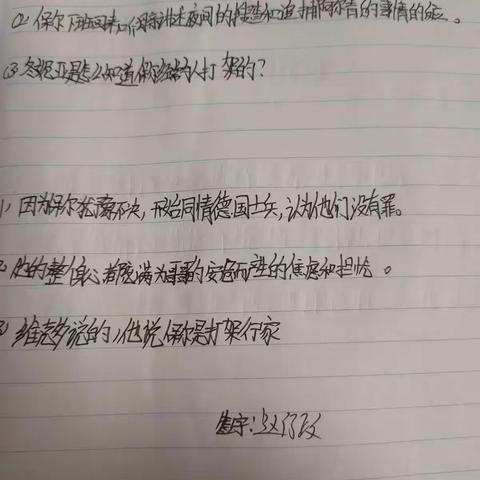 ② 保尔下班回来,向讲述夜间的搜查和追捕的事情的反应。
③ 冬妮亚是怎么知道保尔经常与人打架的?
1) 因为保尔犹豫不决,开始同情德国士兵,认为他们没有罪。
2) 他的整个心都充满为哥哥的安危而产生的焦虑和担忧。
3) 维克多说的,他说保尔是打架行家
签字: